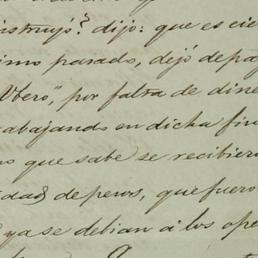 nstruyó? dijo: que es cie
imo pasado, dejó de pa
Ubero", por falta de dine
abajando en dicha fin
o que sabe se recibiero
idad de pesos, que fuero
ya se debian á los ope